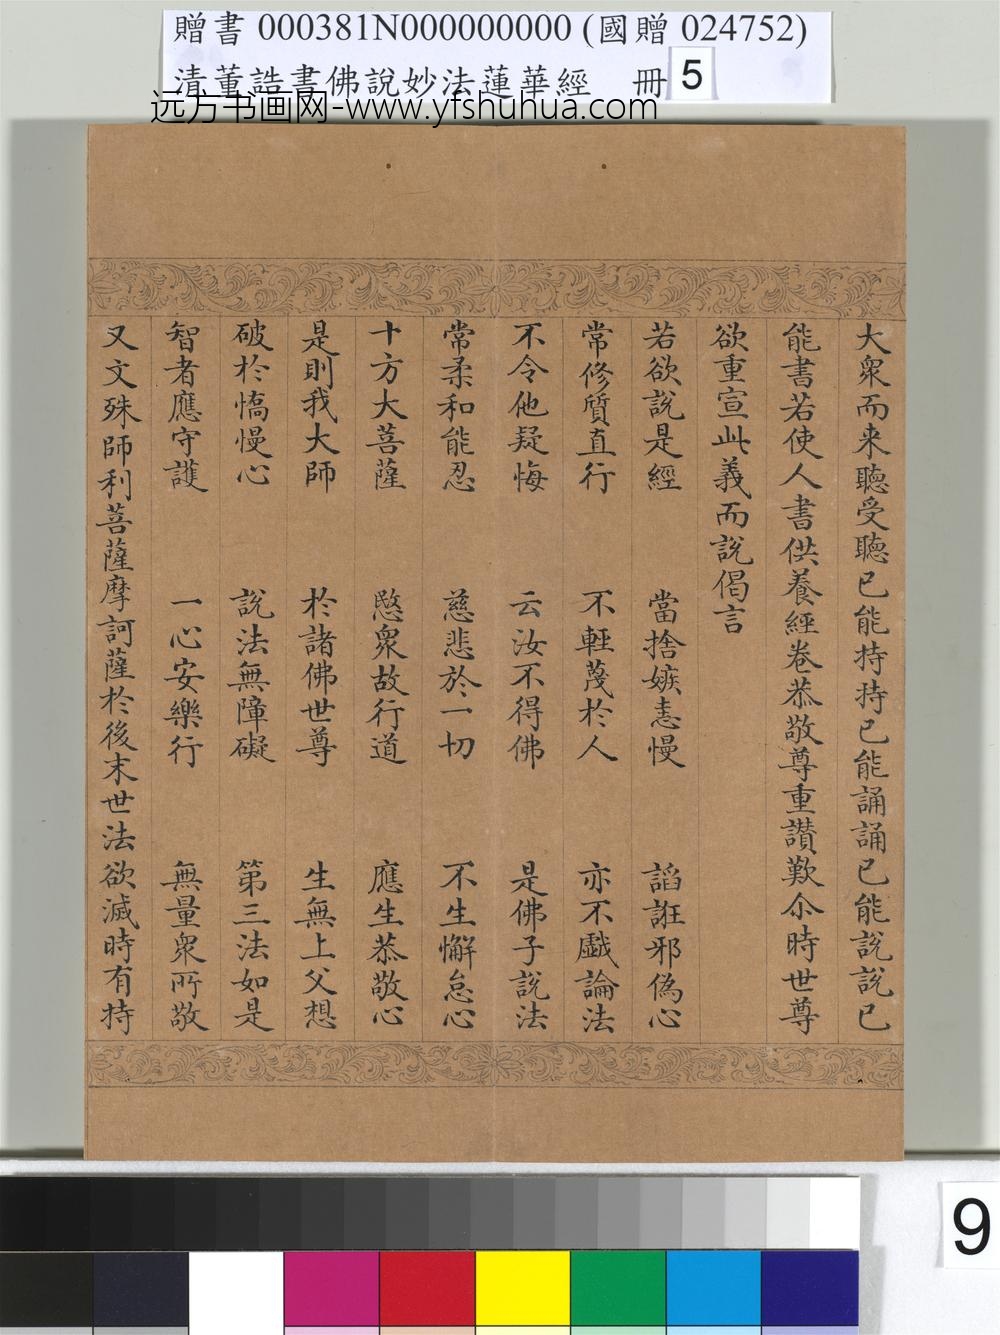 贈書 000381N000000000 (國贈 024752)
清董誥書佛說妙法蓮華經 冊 5
远方书画网-www.yfshuhua.com
大眾而来聽受聽已能持持已能誦誦已能說說已
能書若使人書供養經卷恭敬尊重讃歎尒時世尊
欲重宣此義而說偈言
若欲說是經 當捨嫉恚慢 諂誑邪偽心
常修質直行 不輕蔑於人 亦不戲論法
不令他疑悔 云汝不得佛 是佛子說法
常柔和能忍 慈悲於一切 不生懈怠心
十方大菩薩 愍眾故行道 應生恭敬心
是則我大師 於諸佛世尊 生無上父想
破於憍慢心 說法無障礙 第三法如是
智者應守護 一心安樂行 無量眾所敬
又文殊師利菩薩摩訶薩於後末世法欲滅時有持
9